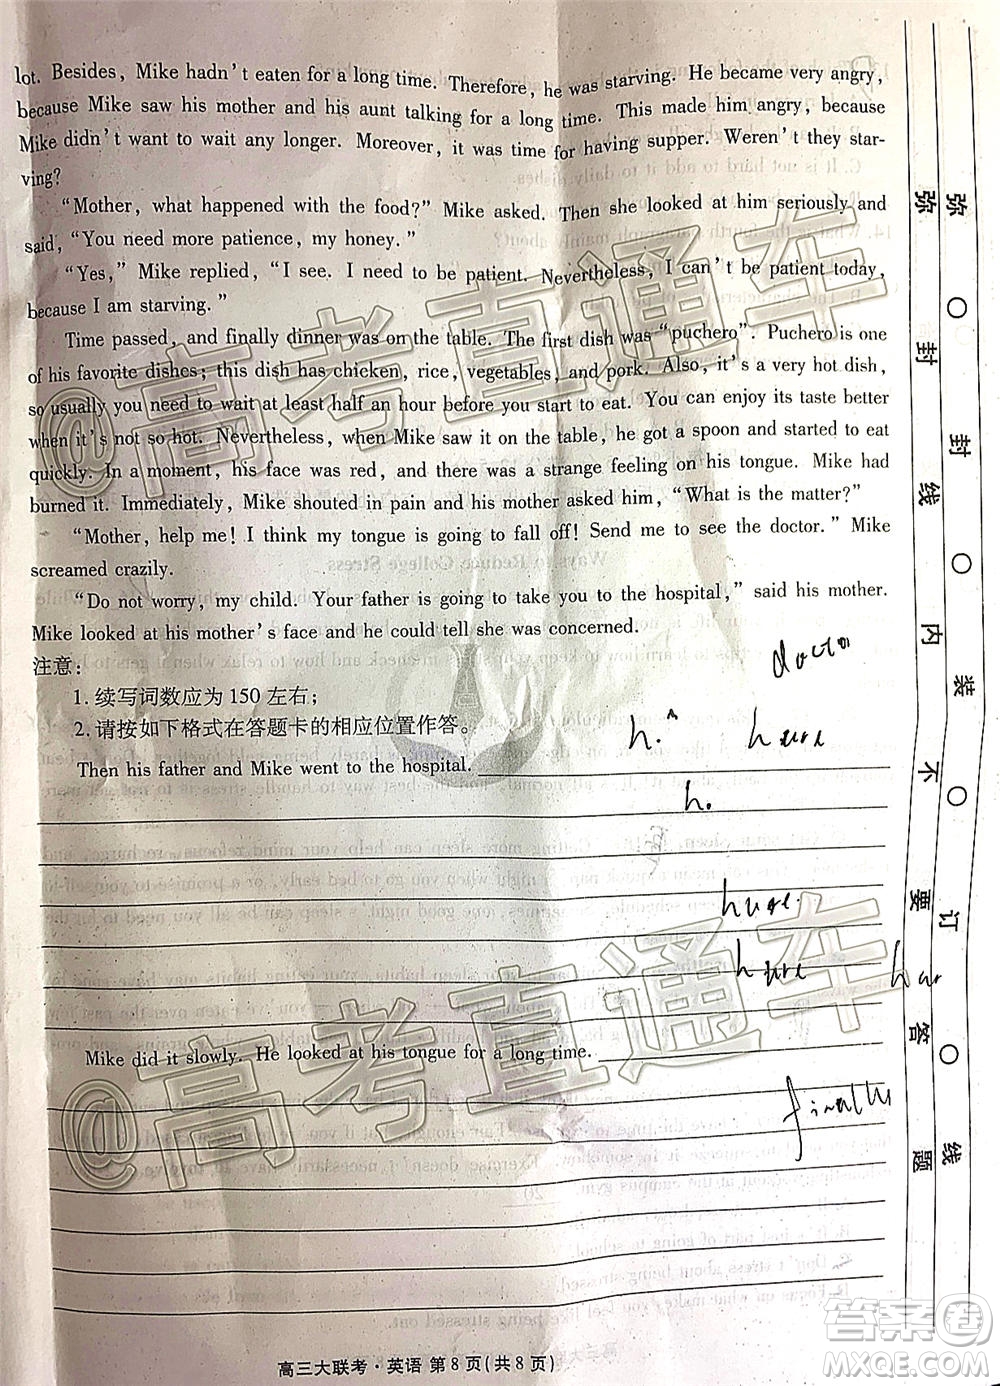 lot. Besides, Mike hadn't eaten for a long time. Therefore, he was starving. He became very angry,
because Mike saw his mother and his aunt talking for a long time. This made him angry, because
Mike didn't want to wait any longer. Moreover, it was time for having supper. Weren't they star-
ving?
"Mother, what happened with the food?" Mike asked. Then she looked at him seriously and
said, "You need more patience, my honey."
"Yes," Mike replied, "I see. I need to be patient. Nevertheless, I can't be patient today,
because I am starving."
Time passed, and finally dinner was on the table. The first dish was "puchero". Puchero is one
of his favorite dishes; this dish has chicken, rice, vegetables, and pork. Also, it's a very hot dish,
so usually you need to wait at least half an hour before you start to eat. You can enjoy its taste better
when it's not so hot. Nevertheless, when Mike saw it on the table, he got a spoon and started to eat
quickly. In a moment, his face was red, and there was a strange feeling on his tongue. Mike had
burned it. Immediately, Mike shouted in pain and his mother asked him, "What is the matter?"
"Mother, help me! I think my tongue is going to fall off! Send me to see the doctor." Mike
screamed crazily.
"Do not worry, my child. Your father is going to take you to the hospital," said his mother.
Mike looked at his mother's face and he could tell she was concerned.
注意:
1. 续写词数应为 150 左右;
2. 请按如下格式在答题卡的相应位置作答。
Then his father and Mike went to the hospital.
Mike did it slowly. He looked at his tongue for a long time.
高三大联考·英语 第 8 页(共 8 页)
弥 封 线 内 不 要 答 题
弥 ○ 封 ○ 装 ○ 订 ○ 线
@高考直通车
@高考直通车
答案圈
MXQE.COM